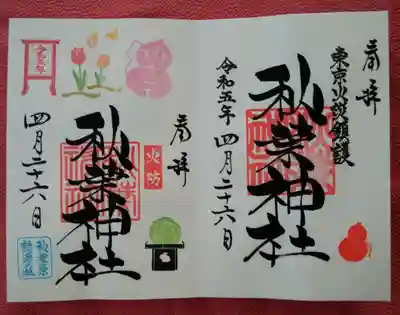 奉拝
東京火災鎮護
秋葉神社
令和五年 四月二十六日
奉拝
火防
秋葉神社
四月二十六日
令和五年